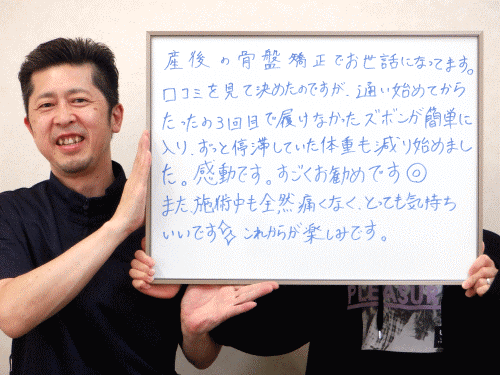 産後の骨盤矯正でお世話になってます。
口コミを見て決めたのですが、通い始めてから
たったの3回目で履けなかったズボンが簡単に
入り、ずっと停滞していた体重も減り始めまし
た。感動です。すごくお勧めです◎
また、施術中も全然痛くなく、とっても気持ち
いいです☆ これからが楽しみです。
PLEASU